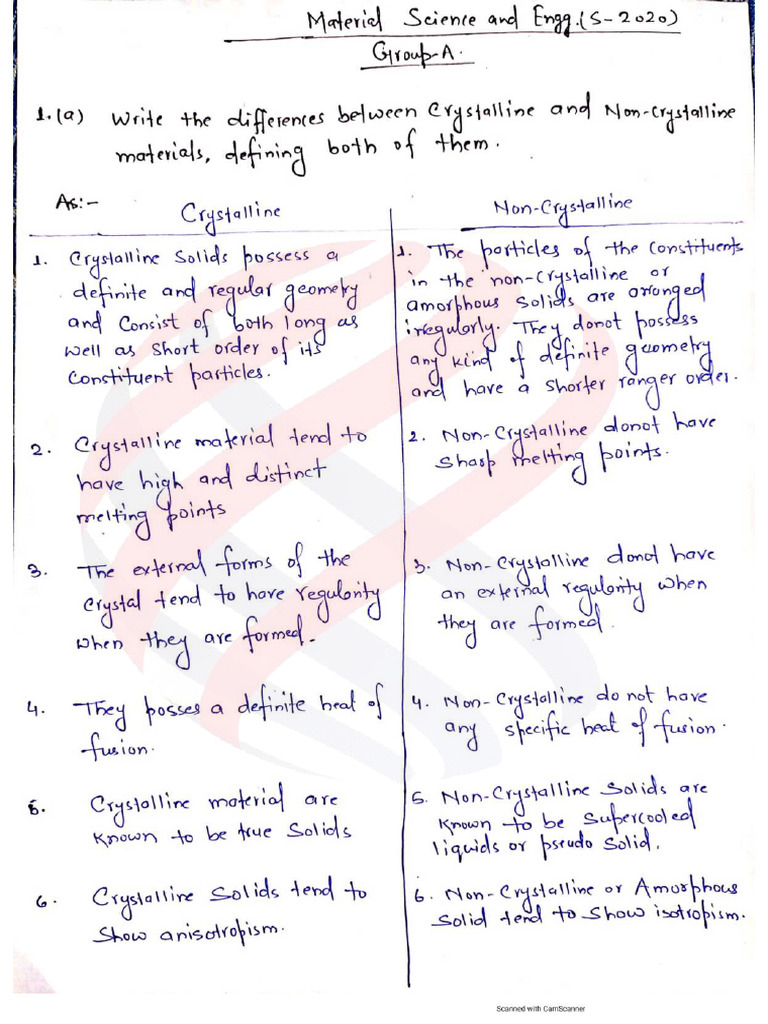 Material Science and Engg.(S-2020)
Group-A.
1.(a) Write the differences between Crystalline and Non-Crystalline
materials, defining both of them.
As:-
Crystalline
1. Crystalline Solids possess a
definite and regular geometry
and Consist of both long as
well as Short order of its
Constituent particles.
2. Crystalline material tend to
have high and distinct
melting points
3. The external forms of the
Crystal tend to have regularity
when they are formed.
4. They posses a definite heat of
fusion.
5. Crystalline material are
known to be true Solids
6. Crystalline Solids tend to
Show anisotropism.
Non-Crystalline
1. The particles of the Constituents
in the non-Crystalline or
amorphous Solids are arranged
irregularly. They donot possess
any kind of definite geometry
and have a shorter ranger order.
2. Non-Crystalline donot have
Sharp melting points.
3. Non-Crystalline donot have
an external regularity when
they are formed.
4. Non-Crystalline do not have
any specific heat of fusion.
5. Non-Crystalline Solids are
known to be Supercooled
liquids or pseudo Solid.
6. Non-Crystalline or Amorphous
Solid tend to Show isotropism.
Scanned with CamScanner